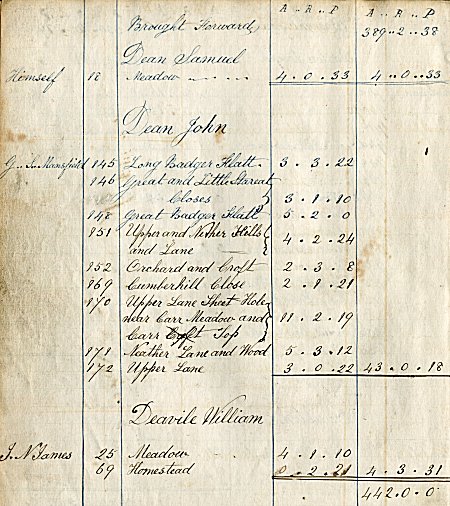 A - R - P A - R - P
Brought Forward 389 - 2 - 38
Dean Samuel
Himself 18 Meadow 4 - 0 - 33 4 - 0 - 33
Dean John
Mansfield 145 Long Badger Flatt 3 - 3 - 22
146 Great and Little
Closes 3 - 1 - 10
148 Great Badger Flatt 5 - 2 - 0
151 Upper and Nether Hills
and Lane 4 - 2 - 24
152 Orchard and Croft 2 - 3 - 8
169 Cumberhill Close 2 - 1 - 21
170 Upper Lane Short Hole
near Carr Meadow and 11 - 2 - 19
Carr Top
171 Neather Lane and Wood 5 - 3 - 12
172 Upper Lane 3 - 0 - 22 43 - 0 - 18
Deavile William
J. N James 25 Meadow 4 - 1 - 10
69 Homestead 0 - 2 - 21 4 - 3 - 31
442 - 0 - 0